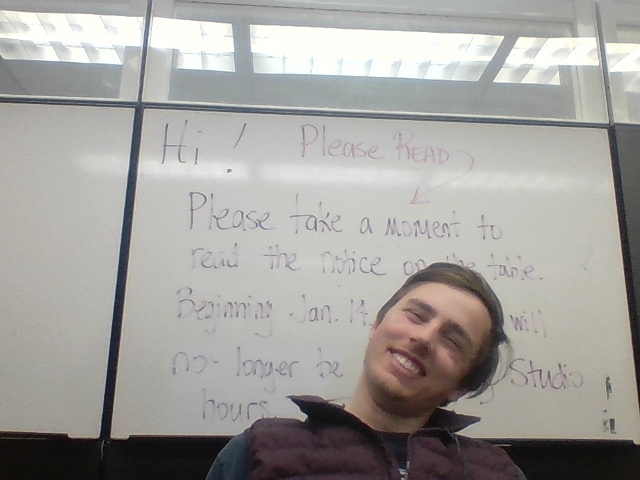 Hi! Please READ
Please take a moment to
read the notice on the table.
Beginning Jan. 14 will
no longer be Studio
hours.